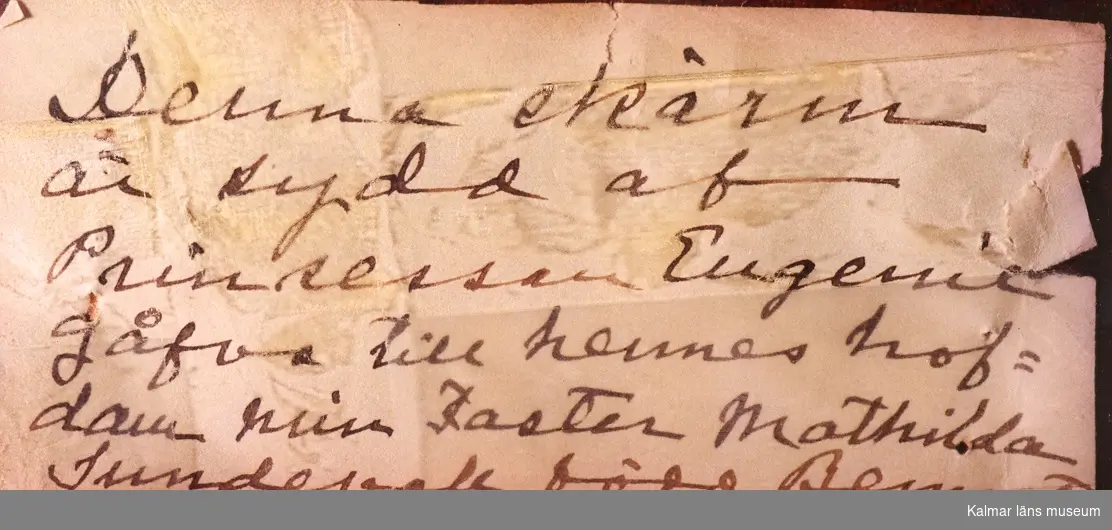 Denna skärm
är sydd af
Prinsessan Eugenie
gåfva till hennes hof=
dam min Faster Mathilda
född
Kalmar läns museum